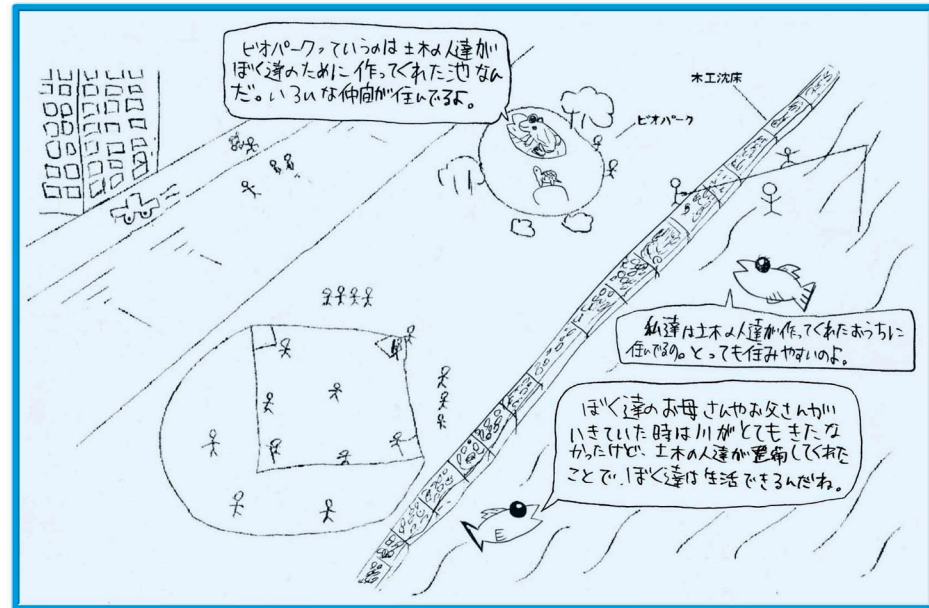 ビオパークっていうのは土木の人達が
ぼく達のために作ってくれた池なん
だ。いろいな仲間が住んでるよ。
木工沈床
ビオパーク
私達は土木の人達が作ってくれたおうちに
住んでるの。とっても住みやすいのよ。
ぼく達のお母さんやお父さんが
いきていた時は川がとてもきたな
かったけど、土木の人達が整備してくれた
ことで、ぼく達は生活できるんだね。